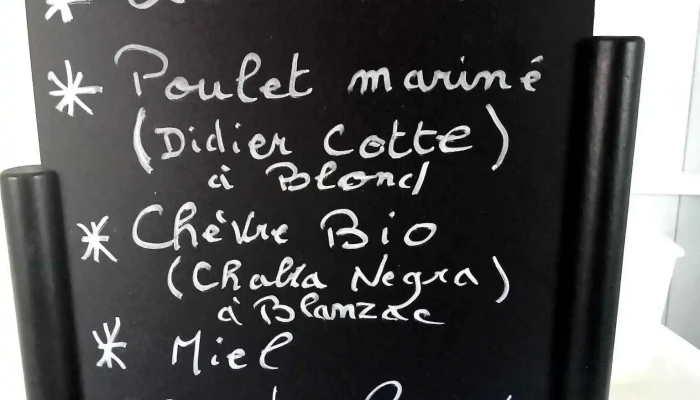 * Poulet mariné
(Didier Cotte)
à Blond
* Chèvre Bio
(Chabra Negra)
à Blanzac
* Miel